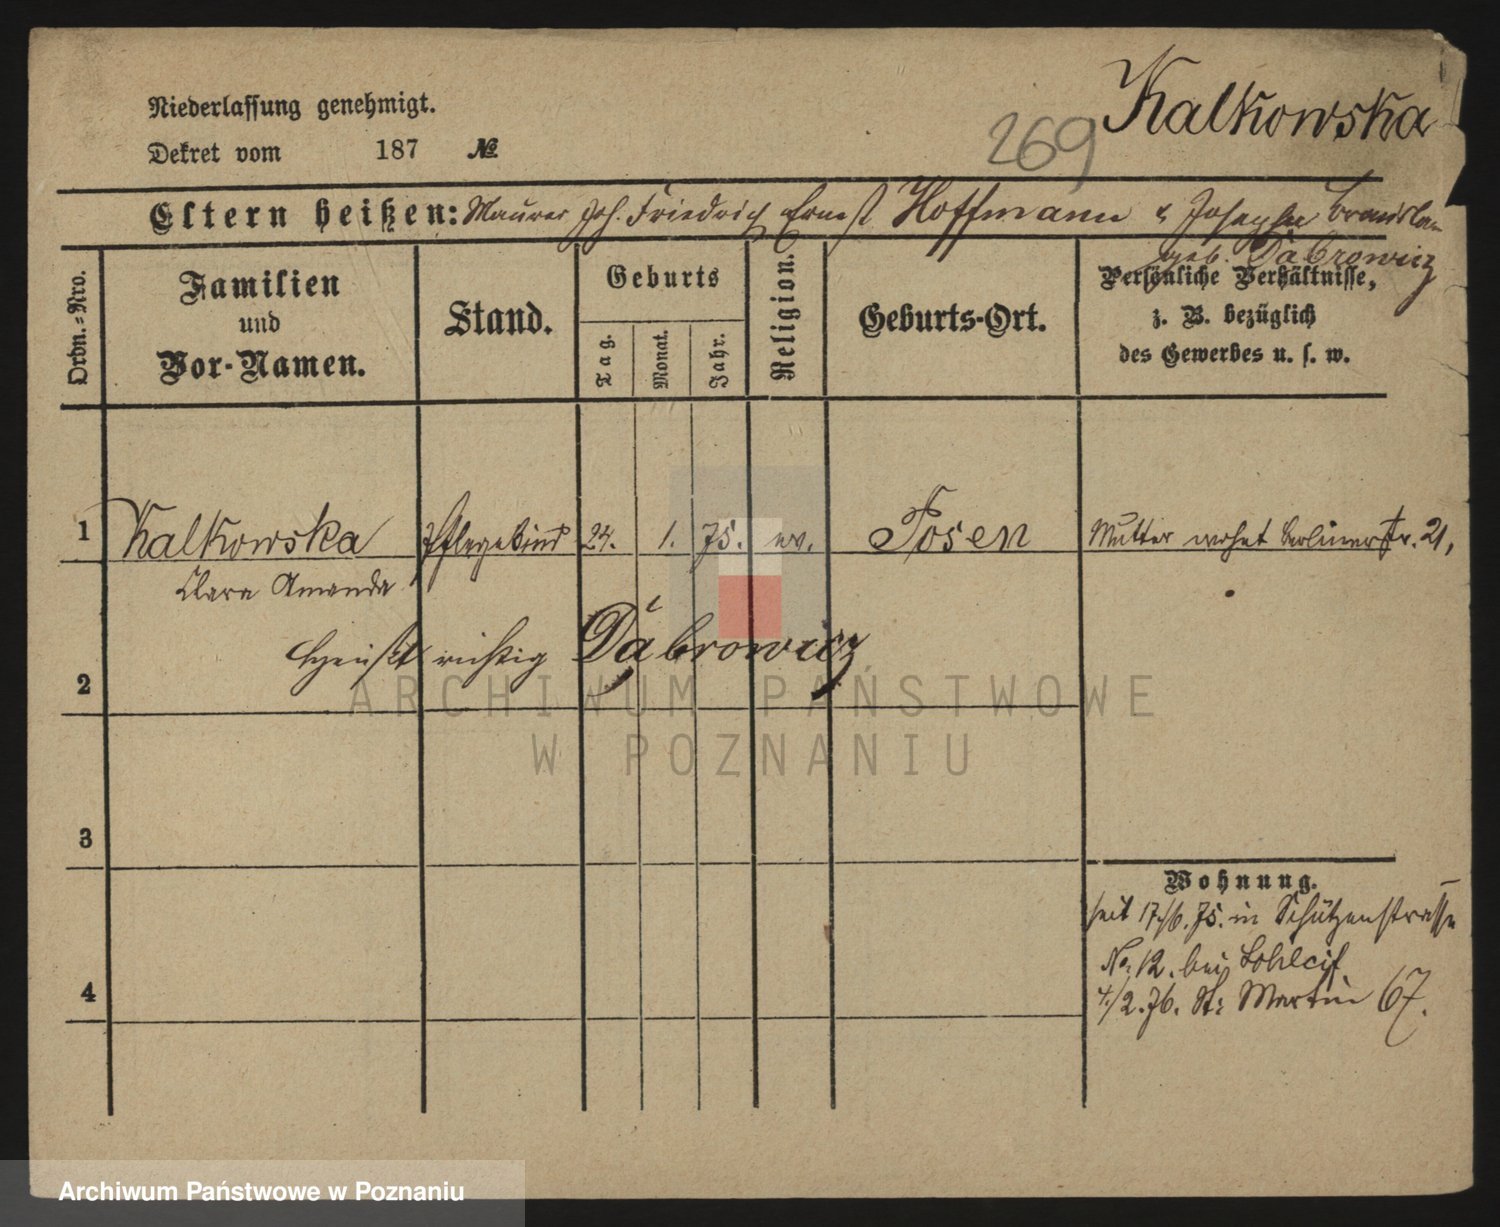 Kalkowska
269
Niederlassung genehmigt.
Dekret vom 187 №
Eltern heißen: Maurer Joh. Friedrich Ernst Hoffmann & Josepha
geb. Dąbrowicz
Ordn.-Nro.
Familien
und
Vor-Namen.
Stand.
Geburts
Tag.
Monat.
Jahr.
Religion.
Geburts-Ort.
Persönliche Verhältnisse,
z. B. bezüglich
des Gewerbes u. s. w.
1 Kalkowska Pflegekind 24. 1. 75. ev. Posen Mutter wohnt Berlinerstr. 21,
Clara Amanda
heißt richtig Dąbrowicz
2
ARCHIWUM PAŃSTWOWE
W POZNANIU
3
Wohnung.
seit 17/6. 75. in Schützenstrasse
No 12. bei
4
4/2. 76. St. Martin 67.
Archiwum Państwowe w Poznaniu